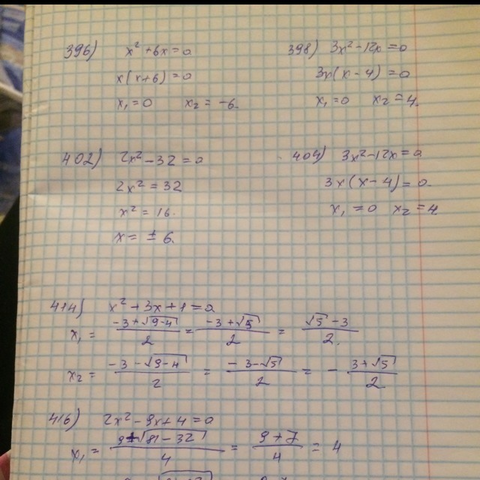 396) x² + 6x = 0
x(x+6) = 0
x₁ = 0 x₂ = -6.
398) 3x² - 12x = 0
3x(x - 4) = 0
x₁ = 0 x₂ = 4.
402) 2x² - 32 = 0
2x² = 32
x² = 16.
x = ± 6.
404) 3x² - 12x = 0
3x(x - 4) = 0.
x₁ = 0 x₂ = 4
414) x² + 3x + 1 = 0
x₁ = (-3 + √(9-4))/2 = (-3 + √5)/2 = (√5 - 3)/2.
x₂ = (-3 - √(9-4))/2 = (-3 - √5)/2 = - (3 + √5)/2
416) 2x² - 9x + 4 = 0
x₁ = (9 + √(81 - 32))/4 = (9 + 7)/4 = 4